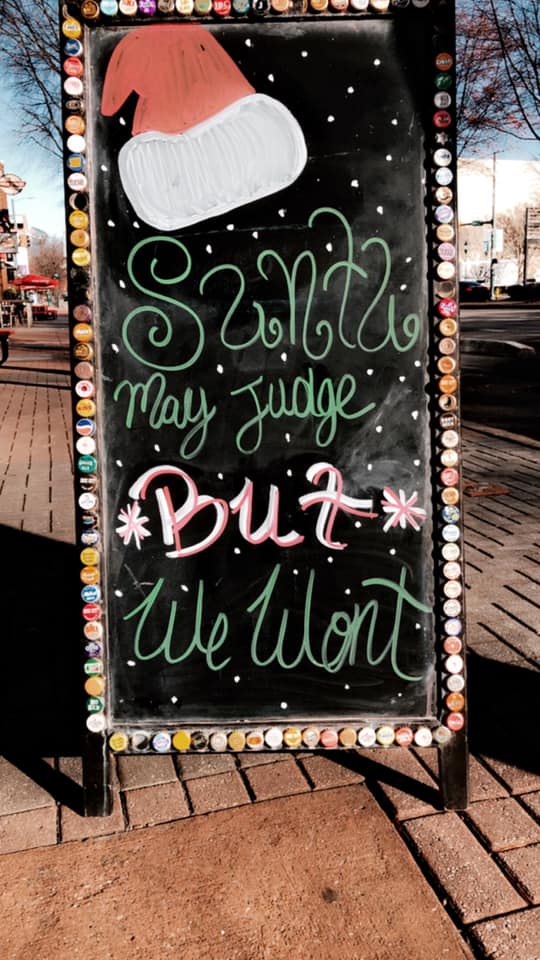 Santa
May Judge
But
We Wont